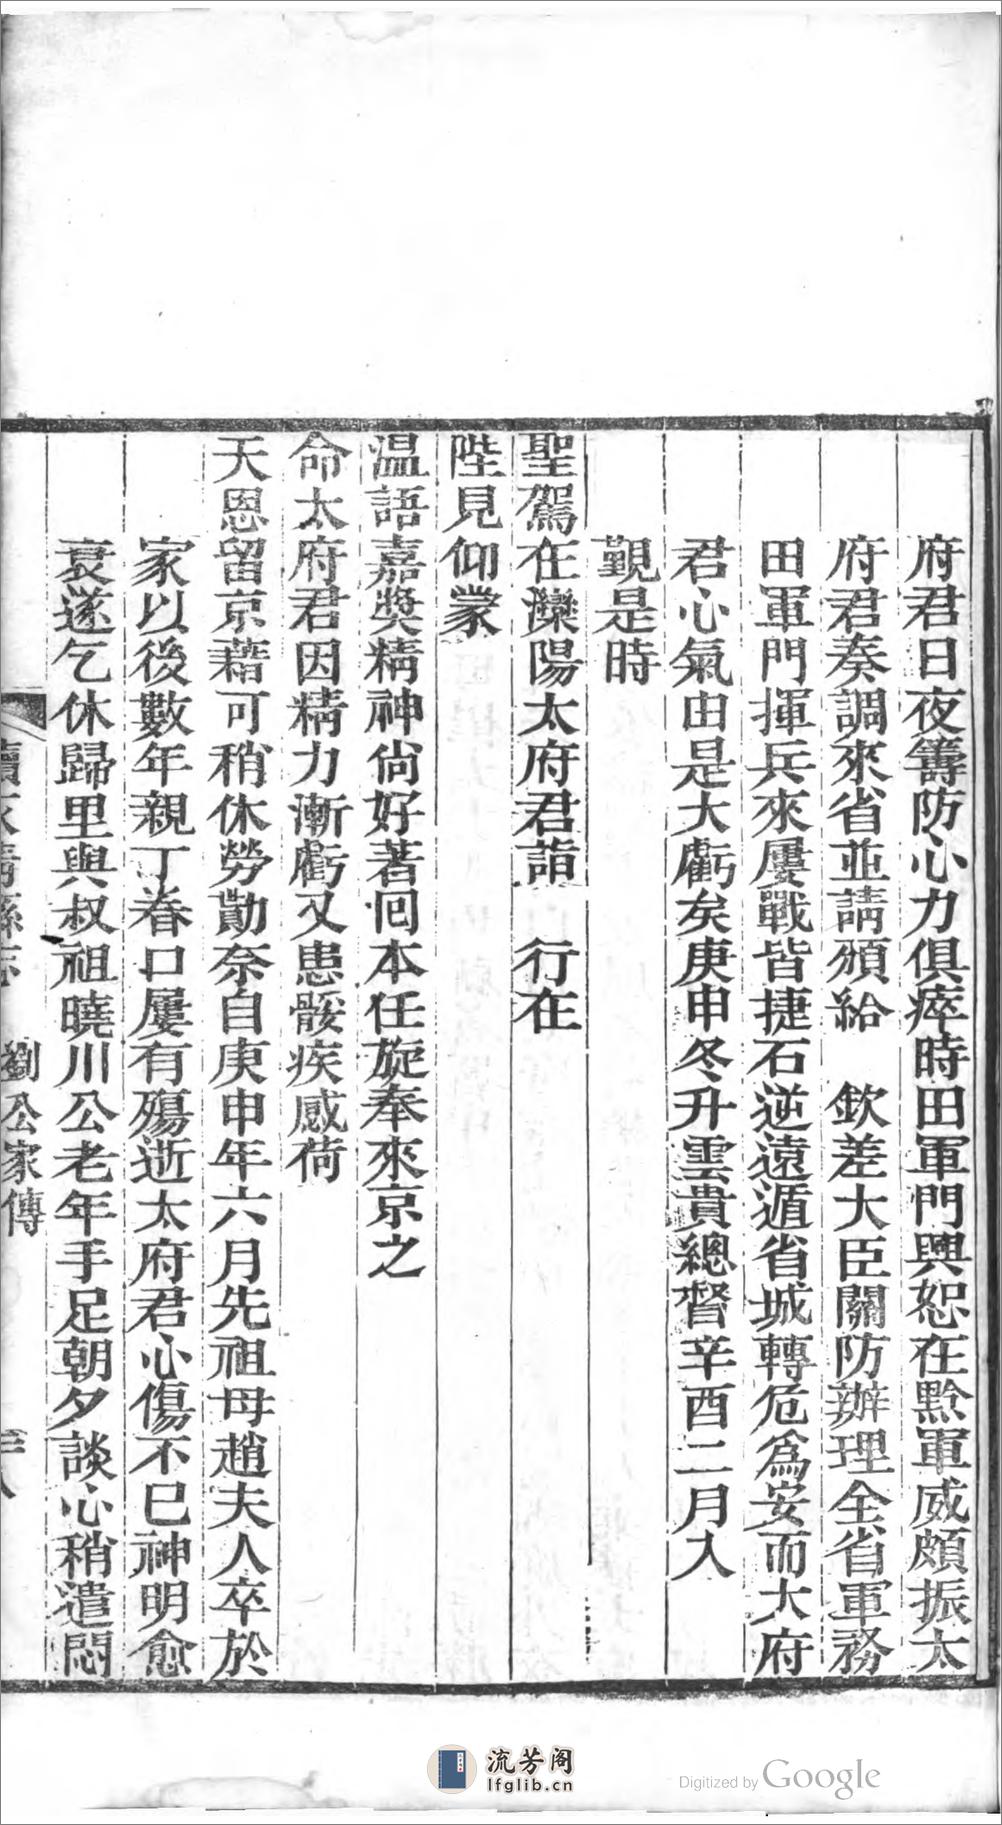 府君日夜籌防心力俱瘁時田軍門興恕在黔軍威頗振太
府君奏調來省並請頒給　欽差大臣關防辦理全省軍務
田軍門揮兵來屢戰皆捷石逆遠遁省城轉危爲安而大府
君心氣由是大虧矣庚申冬升雲貴總督辛酉二月入
覲是時
聖駕在灤陽太府君詣　行在
陛見仰蒙
溫語嘉獎精神尙好著回本任旋奉來京之
命太府君因精力漸虧又患骽疾感荷
天恩留京藉可稍休勞勩奈自庚申年六月先祖母趙夫人卒於
家以後數年親丁眷口屢有殤逝太府君心傷不已神明愈
衰遂乞休歸里與叔祖曉川公老年手足朝夕談心稍遣悶
劉公家傳
流芳阁
lfglib.cn
Digitized by Google